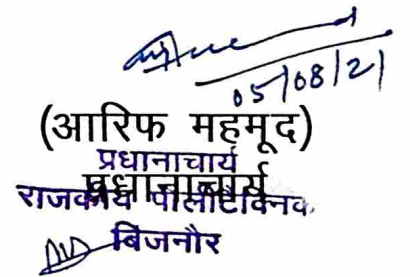 05/08/21
(आरिफ महमूद)
प्रधानाचार्य
प्रधानाचार्य
राजकीय पॉलीटेक्निक
बिजनौर